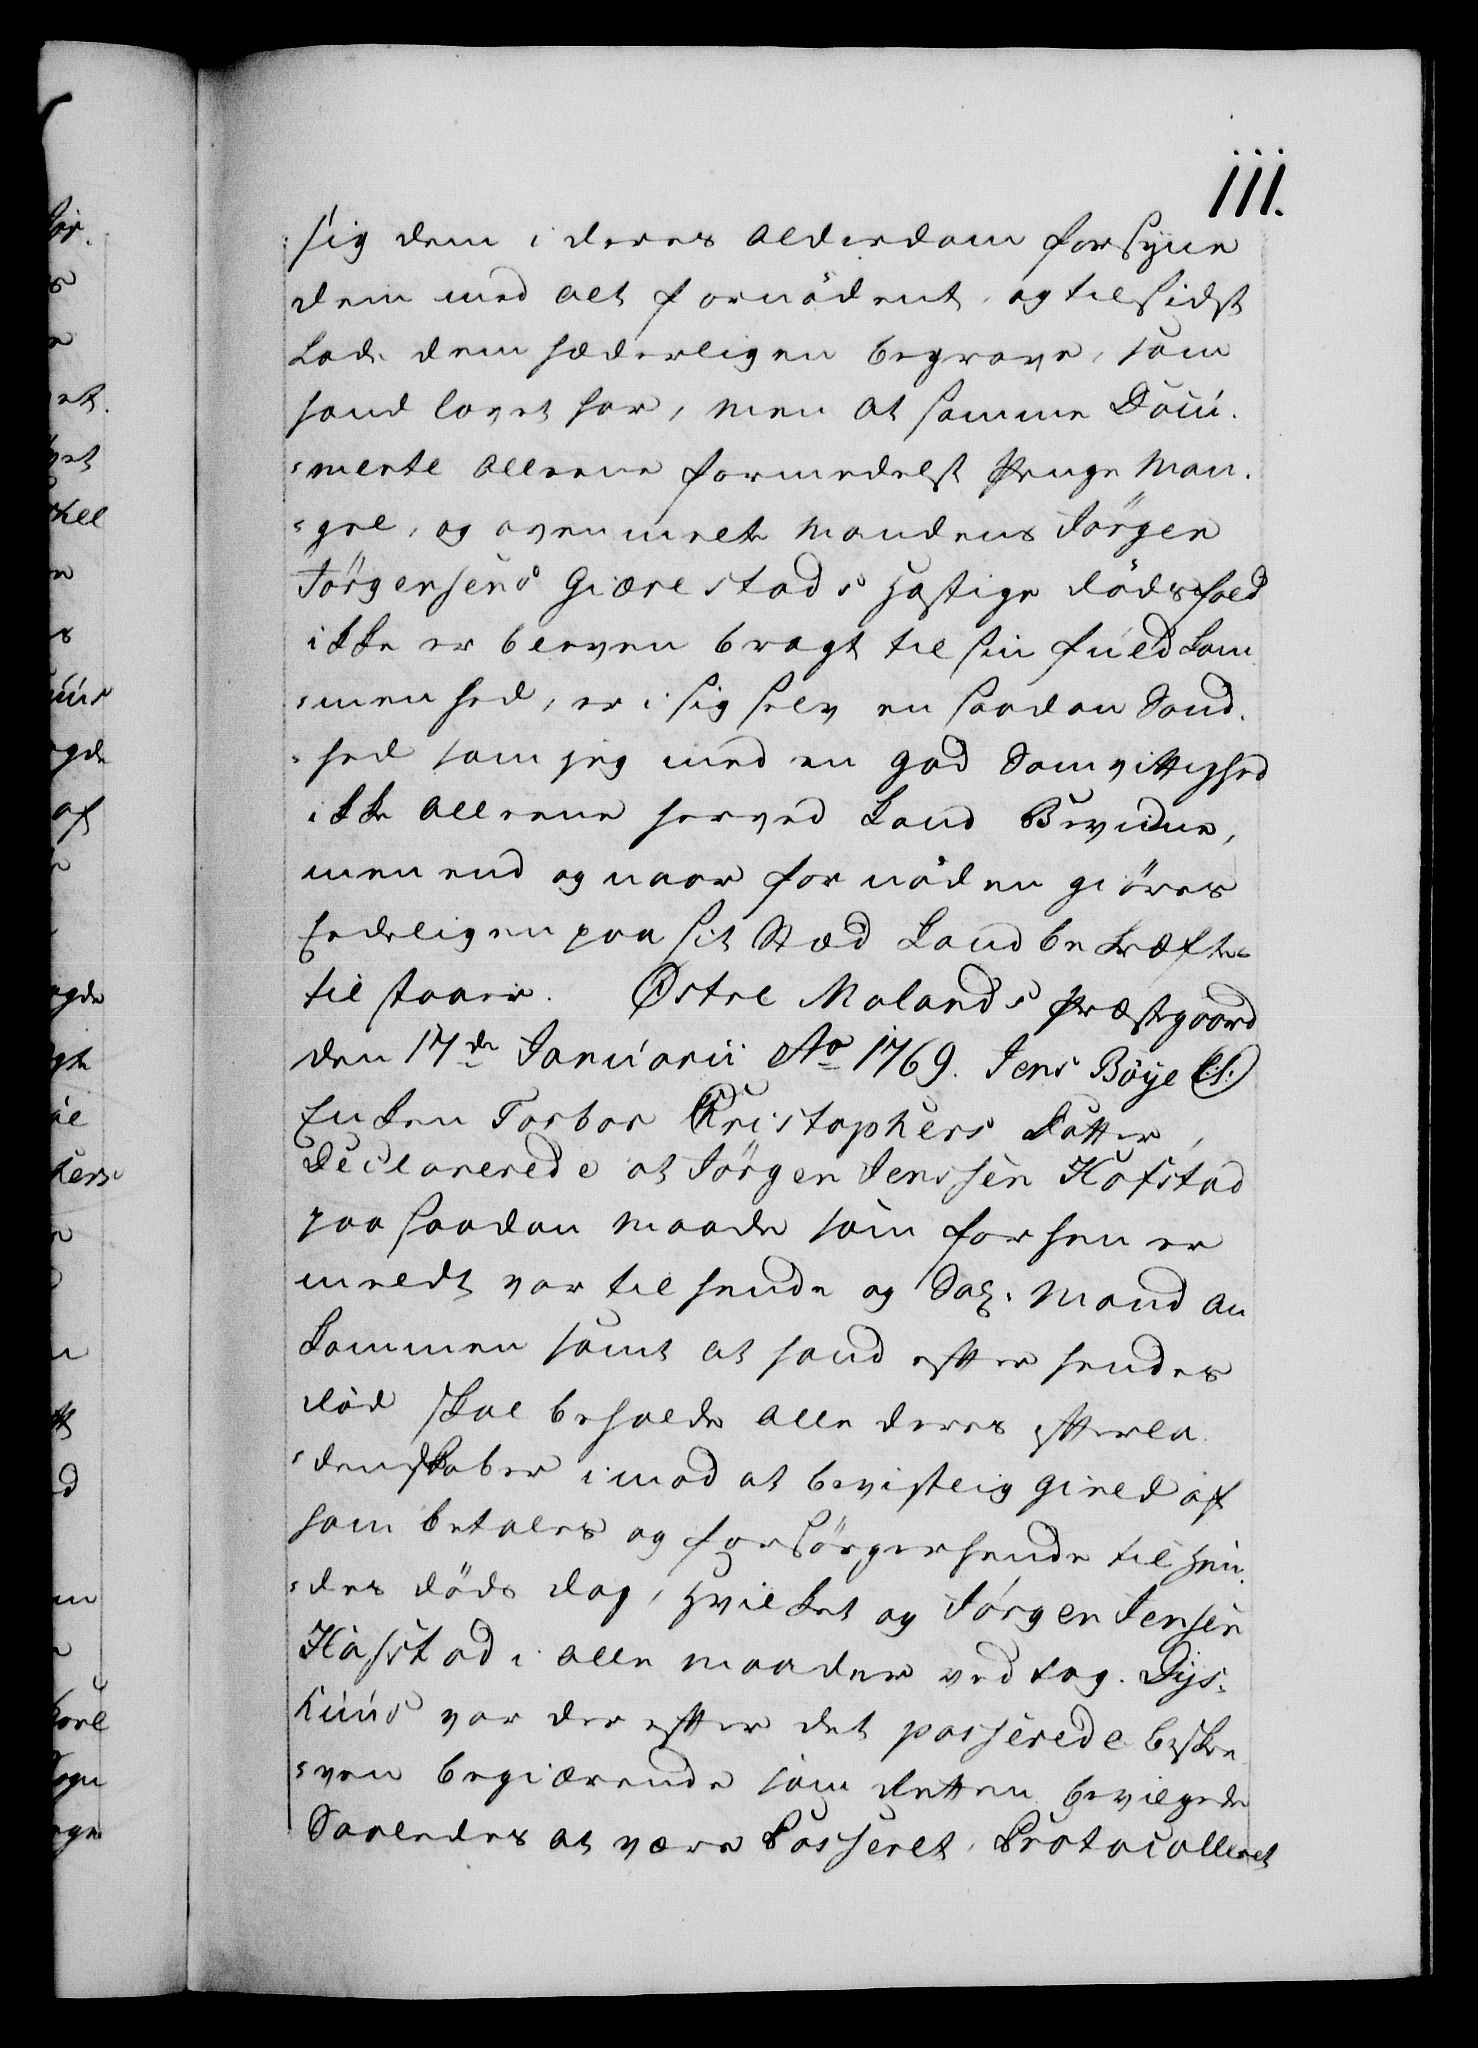 111.
sig dem i deres Alderdom forsÿne
dem med alt fornödent, og tilsidst
Lade dem hæderligen begrave, som
hand lovet har, men at samme Docu¬
mente Alleene formedelst Penge Man¬
gel, og ovenmelte Mandens Jörgen
Jörgensens Giærestads hastige dödsfald
ikke er bleven bragt til sin fuldkom¬
menhed, er i sig selv en saadan Sand¬
hed som jeg med en god Samvittighed
ikke Alleene herved Kand Bevidne,
men end og naar fornöden giöres
Eedeligen paa sit Stæd Kand bekræfte
tilstaaer. Østre Molands Præstegaard
den 17de Januarii Ao 1769. Jens Böÿe (L:S:)
Enken Torbor Christophers Datter,
Declarerede at Jörgen Jenssen Hafstad
paa saadan Maade som forhen er
meldt var til hende og Sal: Mand an
kommen samt at hand efter hendes
död skal beholde Alle deres efterla¬
denskaber imod at bevislig Gield af
ham betales og forsörger hende til hen¬
des döds dag, hvilket og Jörgen Jensen
Hafstad i Alle Maader vedtog. Dÿs¬
huus var derefter det passerede beskre¬
ven begiærende som Retten bevilgede
Saaledes at være Passeret, Protocolleret